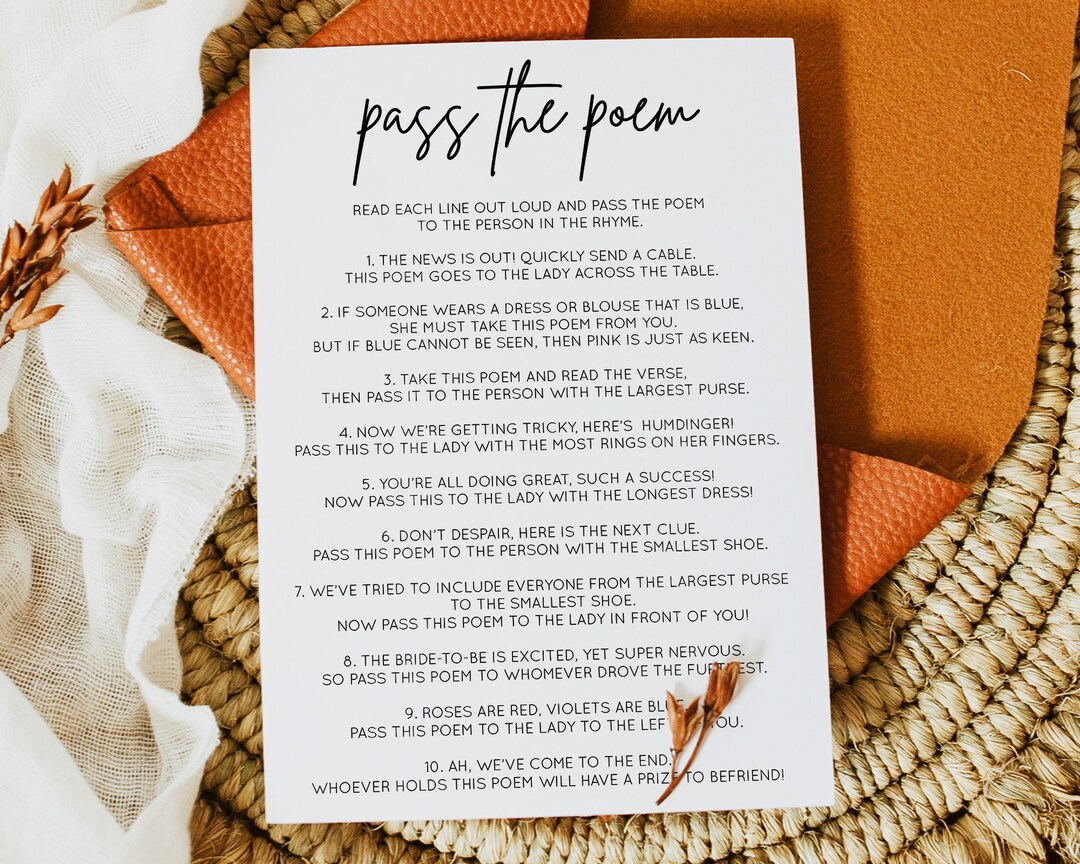 pass the poem
READ EACH LINE OUT LOUD AND PASS THE POEM
TO THE PERSON IN THE RHYME.
1. THE NEWS IS OUT! QUICKLY SEND A CABLE.
THIS POEM GOES TO THE LADY ACROSS THE TABLE.
2. IF SOMEONE WEARS A DRESS OR BLOUSE THAT IS BLUE,
SHE MUST TAKE THIS POEM FROM YOU.
BUT IF BLUE CANNOT BE SEEN, THEN PINK IS JUST AS KEEN.
3. TAKE THIS POEM AND READ THE VERSE,
THEN PASS IT TO THE PERSON WITH THE LARGEST PURSE.
4. NOW WE'RE GETTING TRICKY, HERE'S HUMDINGER!
PASS THIS TO THE LADY WITH THE MOST RINGS ON HER FINGERS.
5. YOU'RE ALL DOING GREAT, SUCH A SUCCESS!
NOW PASS THIS TO THE LADY WITH THE LONGEST DRESS!
6. DON'T DESPAIR, HERE IS THE NEXT CLUE.
PASS THIS POEM TO THE PERSON WITH THE SMALLEST SHOE.
7. WE'VE TRIED TO INCLUDE EVERYONE FROM THE LARGEST PURSE
TO THE SMALLEST SHOE.
NOW PASS THIS POEM TO THE LADY IN FRONT OF YOU!
8. THE BRIDE-TO-BE IS EXCITED, YET SUPER NERVOUS.
SO PASS THIS POEM TO WHOMEVER DROVE THE FURTHEST.
9. ROSES ARE RED, VIOLETS ARE BLUE.
PASS THIS POEM TO THE LADY TO THE LEFT YOU.
10. AH, WE'VE COME TO THE END.
WHOEVER HOLDS THIS POEM WILL HAVE A PRIZE TO BEFRIEND!